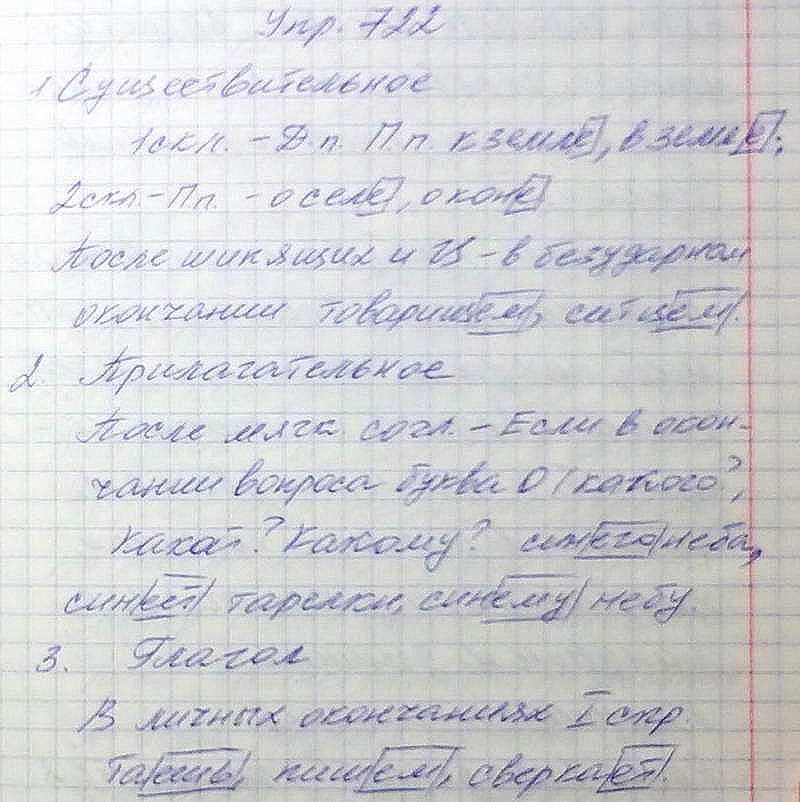 Упр. 722
1 Существительное
1 скл. - Д.п. П.п. к земле, в земле;
2 скл. - П.п. - о селе, о коне
После шипящих и Ц - в безударном
окончании товарищем, ситцем.
2. Прилагательное
После мягк согл. - Если в окон-
чании вопроса буква О (какого?,
Какой? Какому? синего неба,
синей тарелки, синему небу.
3. Глагол
В личных окончаниях I спр.
Таешь, пишем, сверкает.